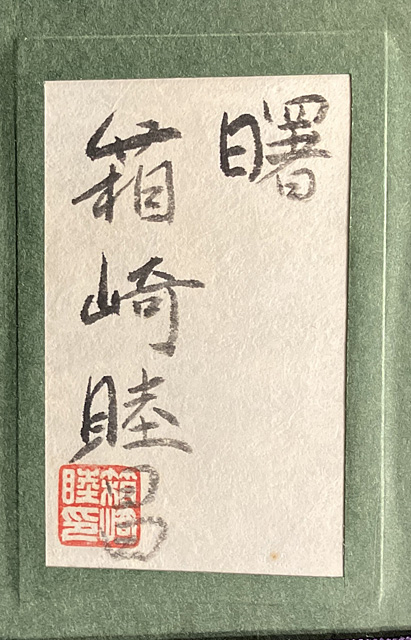 曙
箱崎睦昌
箱崎睦印